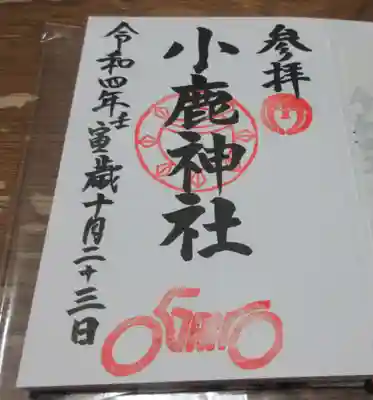 参拝
小鹿神社
令和四年壬寅歳十月二十三日